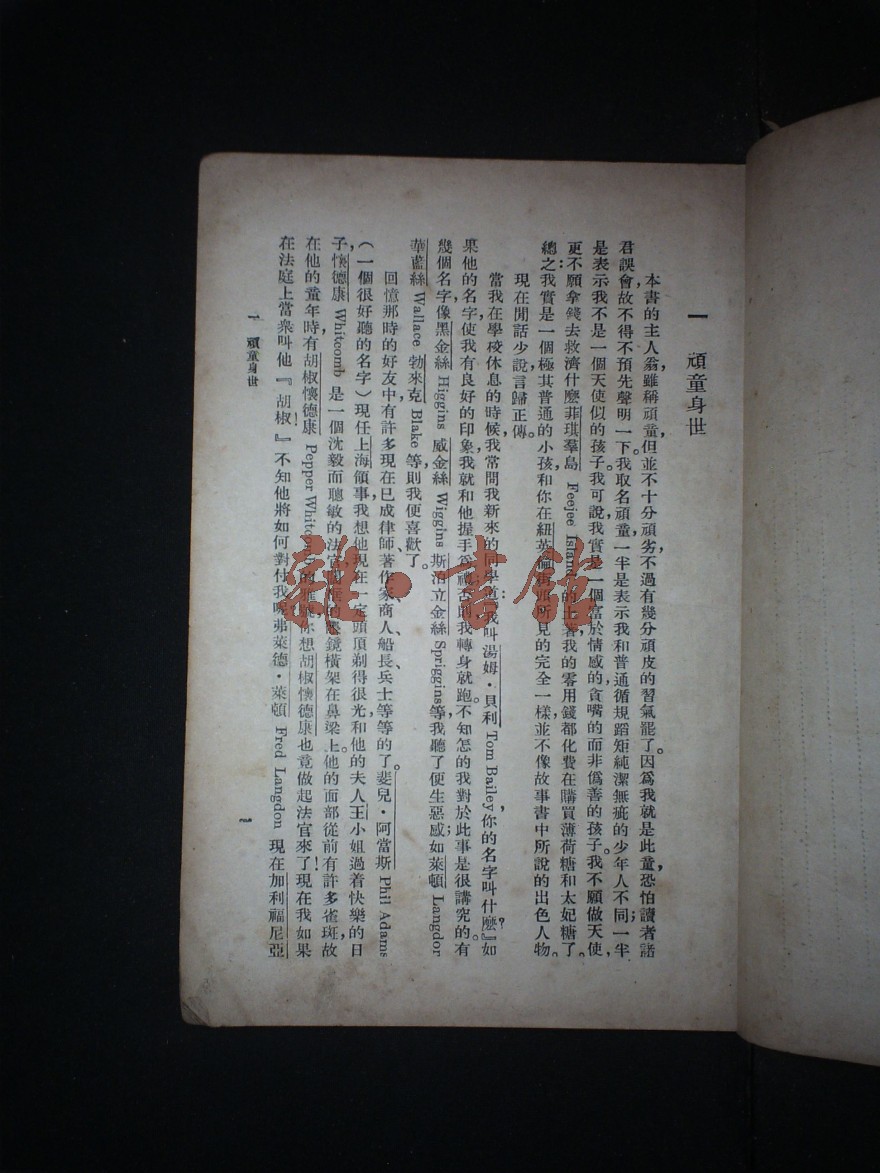 一 頑童身世
本書的主人翁雖稱頑童,但並不十分頑劣,不過有幾分頑皮的習氣罷了。因爲我就是此童,恐怕讀者諸
君誤會故不得不預先聲明一下。我取名頑童一半是表示我和普通循規蹈矩純潔無疵的少年人不同;一半
是表示我不是一個天使似的孩子。我可說我實是一個富於情感的,貪嘴的而非僞善的孩子。我不願做天使,
更不願拿錢去救濟什麼菲琪羣島 Feejee Island 的土著我的零用錢都化費在購買薄荷糖和太妃糖了。
總之:我實是一個極其普通的小孩,和你在紐英倫 所見的完全一樣,並不像故事書中所說的出色人物。
現在閒話少說言歸正傳。
當我在學校休息的時候,我常問我新來的同學道:『我叫湯姆·貝利 Tom Bailey,你的名字叫什麼?』如
果他的名字使我有良好的印象,我就和他握手爲禮,否則我轉身就跑。不知怎的我對於此事是很講究的。有
幾個名字,像黑金絲 Higgins 威金絲 Wiggins 斯泊立金絲 Spriggins 等,我聽了便生惡感;如萊頓 Langdon
華藍絲 Wallace 勃來克 Blake 等則我便喜歡了。
回憶那時的好友中有許多現在已成律師、著作家、商人、船長、兵士等等的了。斐兒·阿當斯 Phil Adams
(一個很好聽的名字)現任上海領事,我想他現在一定頭頂剃得很光,和他的夫人王小姐過着快樂的日
子。懷德康 Whitcomb 是一個沈毅而聰敏的法官, 眼鏡橫架在鼻梁上。他的面部從前有許多雀斑,故
在他的童年時有胡椒懷德康 Pepper Whitcomb 的雅號。你想胡椒懷德康也竟做起法官來了!現在我如果
在法庭上當衆叫他『胡椒!』不知他將如何對付我呢?弗萊德·萊頓 Fred Langdon 現在加利福尼亞
一 頑童身世
一
雜·書館